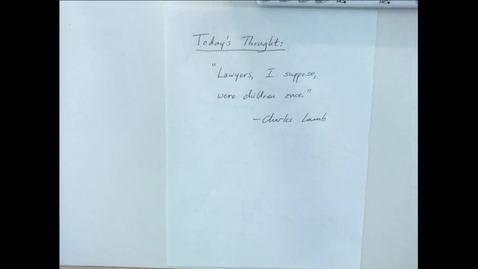 Today's Thought:
"Lawyers, I suppose,
were children once."
—Charles Lamb